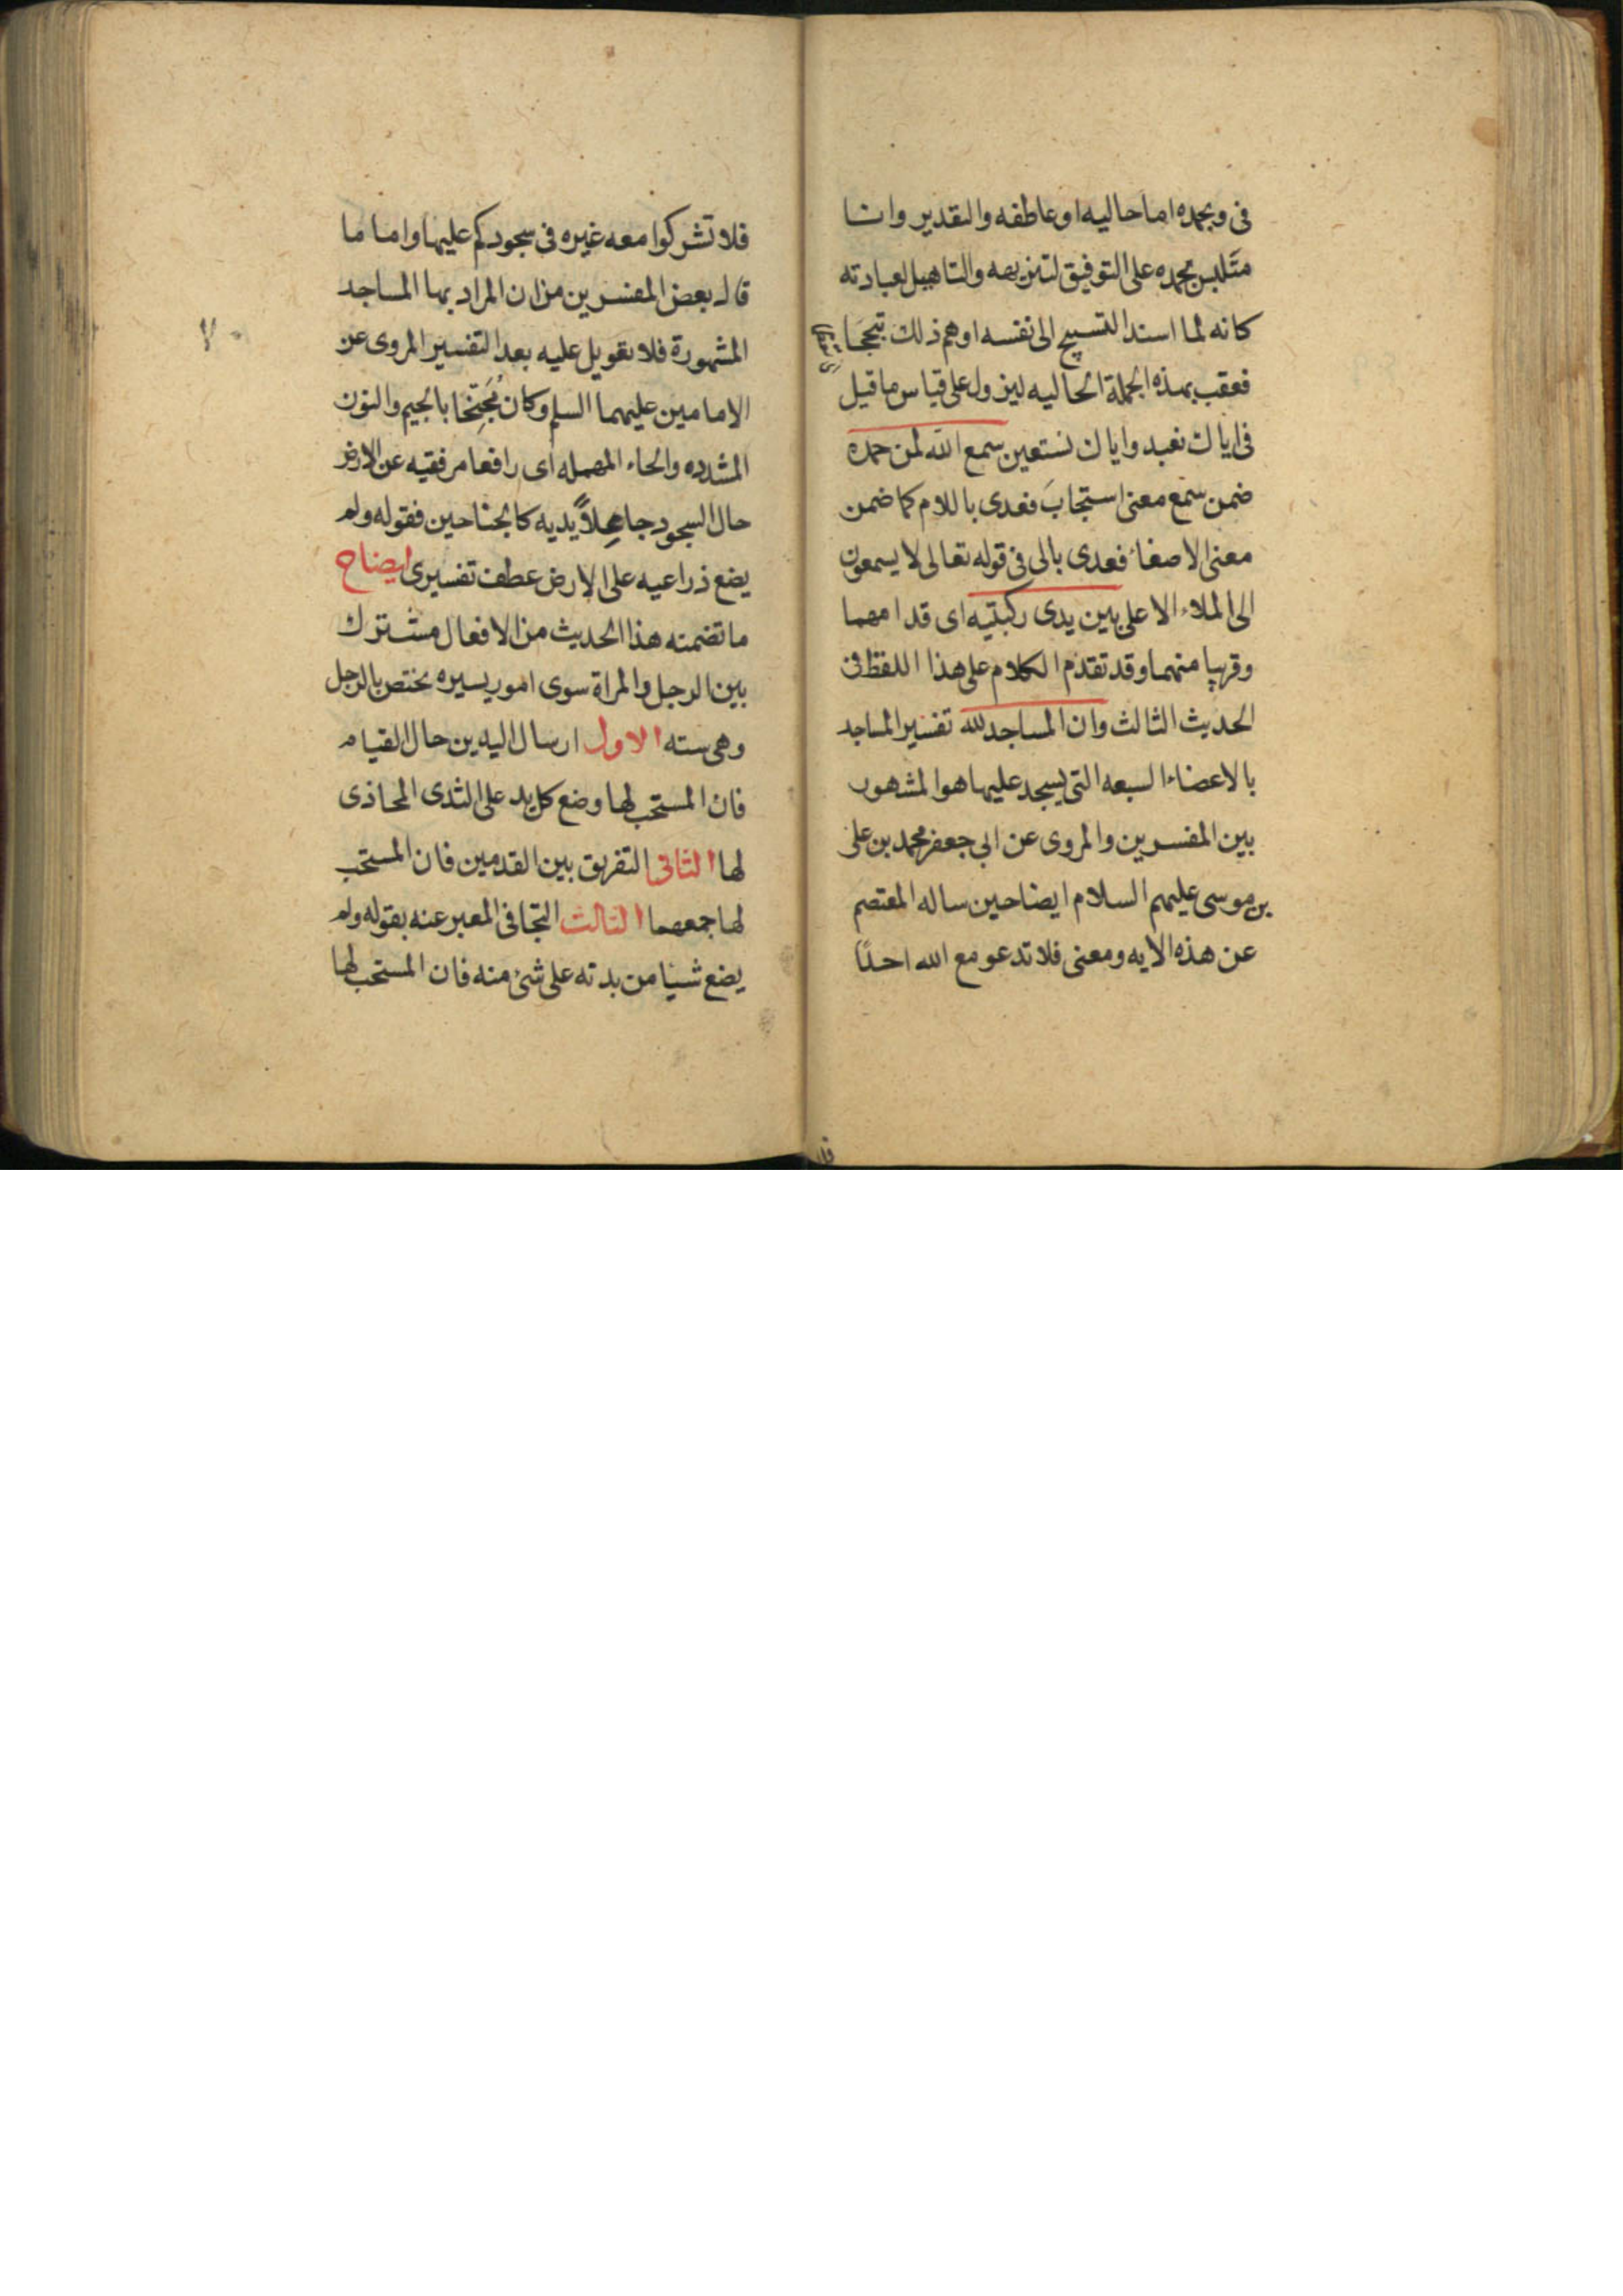 فى وبحمده اما حاليه او عاطفه والتقدير وانا
متلبس بحمده على التوفيق لتنزيهه والتاهيل لعبادته
كانه لما اسند التسبيح الى نفسه اوهم ذلك تبجحا
فعقب بهذه الجملة الحاليه ليزول على قياس ما قيل
فى اياك نعبد واياك نستعين سمع الله لمن حمده
ضمن سمع معنى استجاب فعدى باللام كما ضمن
معنى الاصغاء فعدى بالى فى قوله تعالى لا يسمعون
الى الملاء الاعلى بين يدى ركبتيه اى قدامهما
وقريبا منهما وقد تقدم الكلام على هذا اللفظ فى
الحديث الثالث وان المساجد لله تفسير المساجد
بالاعضاء السبعه التى يسجد عليها هو المشهور
بين المفسرين والمروى عن ابى جعفر محمد بن على
بن موسى عليهم السلام ايضا حين ساله المعتصم
عن هذه الايه ومعنى فلا تدعو مع الله احدًا
فلا
فلا تشركوا معه غيره فى سجودكم عليها واما ما
قال بعض المفسرين من ان المراد بها المساجد
المشهورة فلا تعويل عليه بعد التفسير المروى عن
٧٠
الامامين عليهما السلم وكان مُجَنِّحًا بالجيم والنون
المشدده والحاء المهمله اى رافعا مرفقيه عن الارض
حال السجود جاعلاً يديه كالجناحين فقوله ولم
يضع ذراعيه على الارض عطف تفسيرى ايضاح
ما تضمنه هذا الحديث من الافعال مشترك
بين الرجل والمراة سوى امور يسيره يختص بالرجل
وهى سته الاول ارسال اليدين حال القيام
فان المستحب لها وضع كل يد على الثدى المحاذى
لها الثانى التفريق بين القدمين فان المستحب
لها جمعهما الثالث التجافى المعبر عنه بقوله ولم
يضع شيئا من بدنه على شئ منه فان المستحب لها